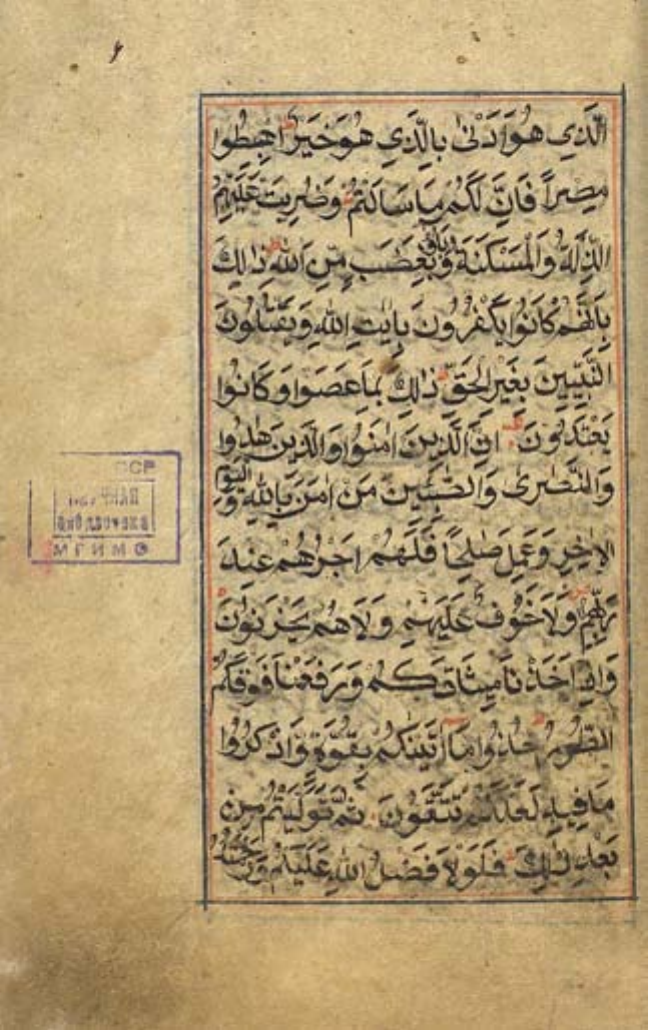 الَّذِي هُوَ اَدْنٰى بِالَّذِي هُوَ خَيْرٌ اِهْبِطُوا
مِصْراً فَاِنَّ لَكُمْ مَا سَاَلْتُمْ وَضُرِبَتْ عَلَيْهِمُ
الذِّلَّةُ وَالْمَسْكَنَةُ وَبَاؤُ بِغَضَبٍ مِنَ اللهِ ذٰلِكَ
بِاَنَّهُمْ كَانُوا يَكْفُرُونَ بِاٰيٰتِ اللهِ وَيَقْتُلُونَ
النَّبِيّينَ بِغَيْرِ الْحَقِّ ذٰلِكَ بِمَا عَصَوْا وَكَانُوا
يَعْتَدُونَ اِنَّ الَّذِينَ اٰمَنُوا وَالَّذِينَ هَادُوا
وَالنَّصٰرٰى وَالصّٰبِئِينَ مَنْ اٰمَنَ بِاللهِ وَالْيَوْمِ
الْاٰخِرِ وَعَمِلَ صَالِحاً فَلَهُمْ اَجْرُهُمْ عِنْدَ
رَبِّهِمْ وَلَا خَوْفٌ عَلَيْهِمْ وَلَا هُمْ يَحْزَنُونَ
وَاِذْ اَخَذْنَا مِيثَاقَكُمْ وَرَفَعْنَا فَوْقَكُمُ
الطُّورَ خُذُوا مَا اٰتَيْنٰكُمْ بِقُوَّةٍ وَاذْكُرُوا
مَا فِيهِ لَعَلَّكُمْ تَتَّقُونَ ثُمَّ تَوَلَّيْتُمْ مِنْ
بَعْدِ ذٰلِكَ فَلَوْلَا فَضْلُ اللهِ عَلَيْكُمْ وَرَحْمَتُهُ
МГИМО